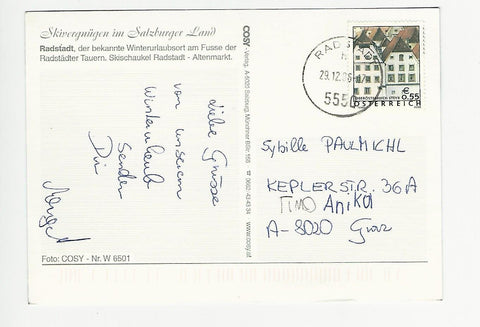 Skivergnügen im Salzburger Land
Radstadt, der bekannte Winterurlaubsort am Fusse der
Radstädter Tauern. Skischaukel Radstadt - Altenmarkt.
liebe Grüsse
von unserem
Winterurlaub
senden
Dir
Foto: COSY - Nr. W 6501
COSY -Verlag, A-5020 Salzburg, Münchner BStr. 156 ☎ 0662-43 43 34 www.cosy.at
RADSTADT
29.12.06-17
5550
€
0.55
ÖSTERREICH
Sybille PAULMICHL
KEPLERSTR. 36A
TIMO Anika
A-8020 Graz